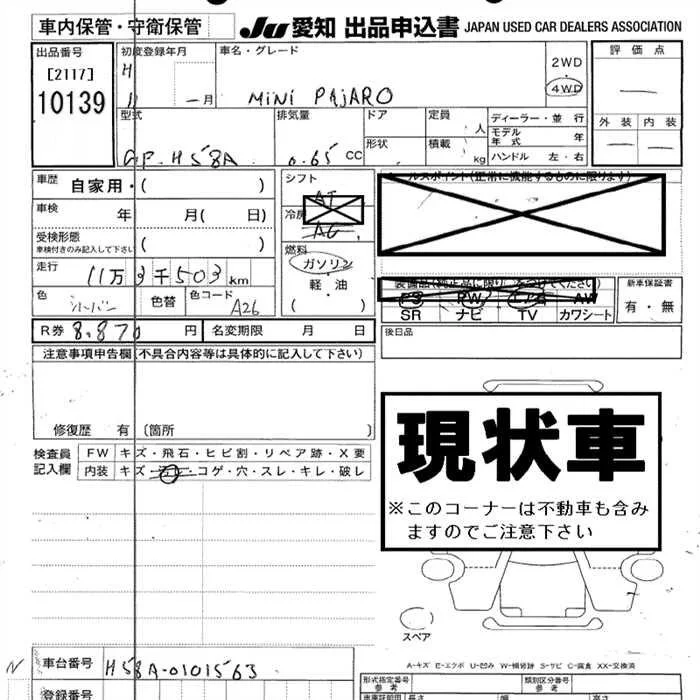 車内保管・守衛保管 JU 愛知 出品申込書 JAPAN USED CAR DEALERS ASSOCIATION
出品番号 初度登録年月 車名・グレード 2WD 評価点
[2117] H 4WD
10139 11 一月 MINI PAJARO
型式 排気量 ドア 定員 人 ディーラー・並行 外装 内装
モデル年式 年
GF. H58A 0.65 CC 形状 積載 kg ハンドル 左・右
車歴 自家用・( ) シフト AT セールスポイント(正常に機能するものに限ります)
車検 年 月( 日) 冷房 AC
受検形態 ( )
車検付きのみ記入して下さい
燃料
走行 11万3千503km ガソリン
軽・油
色 シルバー 色替 色コード A26 ( )
装備品(純正品に限り○をつけてください) 新車保証書
PS PW エアB AW 有・無
SR ナビ TV カワシート
R券 8,870 円 名変期限 月 日 後日品
注意事項申告欄(不具合内容等は具体的に記入して下さい)
修復歴 有 〔箇所 〕
検査員 FW キズ・飛石・ヒビ割・リペア跡・X要
記入欄 内装 キズ・汚レ・コゲ・穴・スレ・キレ・破レ
現状車
※このコーナーは不動車も含み
ますのでご注意下さい
スペア
A-キズ E-エクボ U-凹み W-補修跡 S-サビ C-腐食 XX-交換済
N 車台番号 H58A-0101563
形式指定番号 参考 類別区分番号 参考
登録番号 車庫証明用 長さ 幅 高さ